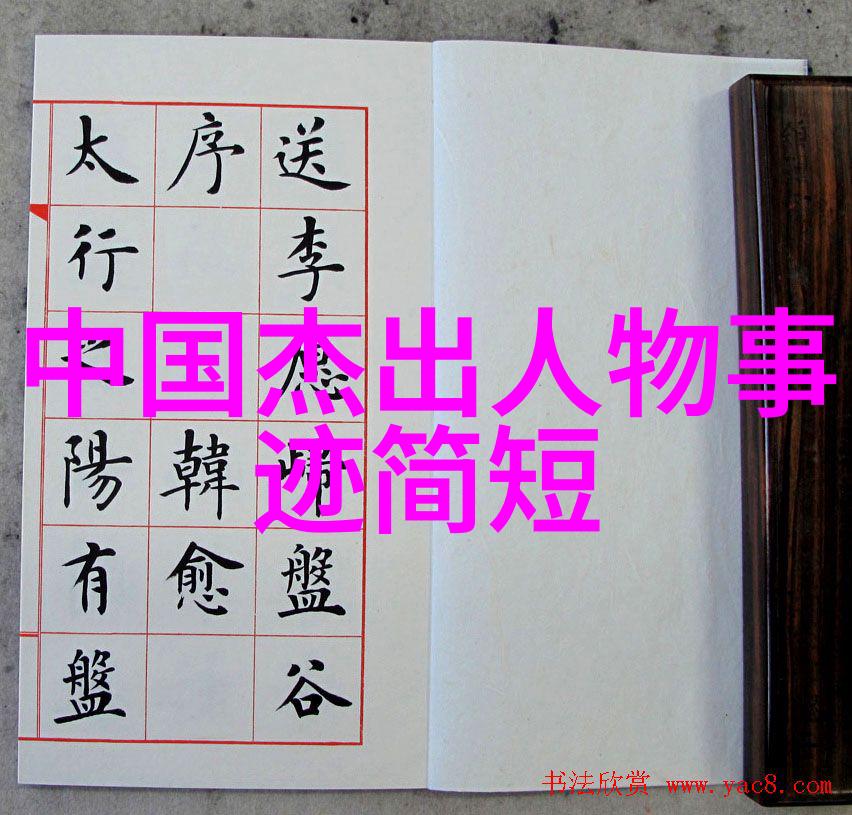 送李愿歸盤谷
序 韓愈
太行之陽有盤
中国杰出人物事
迹简短
书法欣赏 www.yac8.com